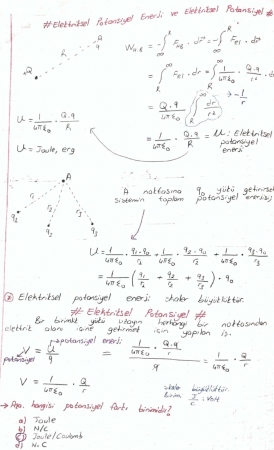 # Elektriksel Potansiyel Enerji ve Elektriksel Potansiyel #
Q
R
A
q
W = -∫ F · dr = -∫ Fel · dr
= ∫ Fel · dr = ∫ 1/4πε₀ · Q·q/r² · dr
= Q·q/4πε₀ ∫ dr/r² → -1/r
U = 1/4πε₀ · Q·q/R
= 1/4πε₀ · Q·q/R = U : Elektriksel potansiyel enerji
U = Joule, erg
A
r₁ r₂ r₃
q₁ q₂ q₃
A noktasına q₀ yükü getirirsek
sistemin toplam potansiyel enerjisi;
U = 1/4πε₀ · q₁·q₀/r₁ + 1/4πε₀ · q₂·q₀/r₂ + 1/4πε₀ · q₀·q₃/r₃
= 1/4πε₀ (q₁/r₁ + q₂/r₂ + q₃/r₃) · q₀
Elektriksel potansiyel enerji skaler büyüklüktür.
# Elektriksel Potansiyel #
Bir birimlik yükü uzayın herhangi bir noktasından
elektrik alanı içine getirmek için yapılan iş.
V = U/q → potansiyel enerji = 1/4πε₀ · Q·q/r / q = 1/4πε₀ · Q/r
potansiyel
V = 1/4πε₀ · Q/r
skaler büyüklüktür.
birim J/c : Volt
→ Aşa. hangisi potansiyel farkı birimidir?
a) Joule
b) N/C
c) Joule/Coulomb
d) N.C